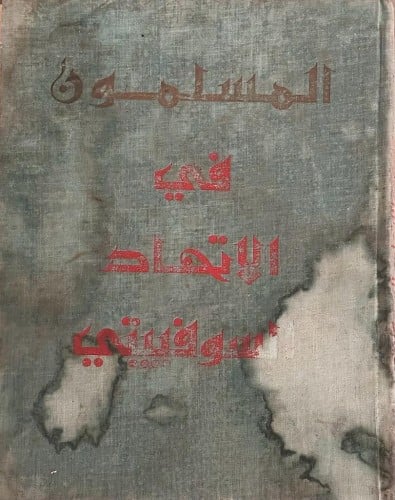 المسلمون
في
الإتحاد
السوفييتي